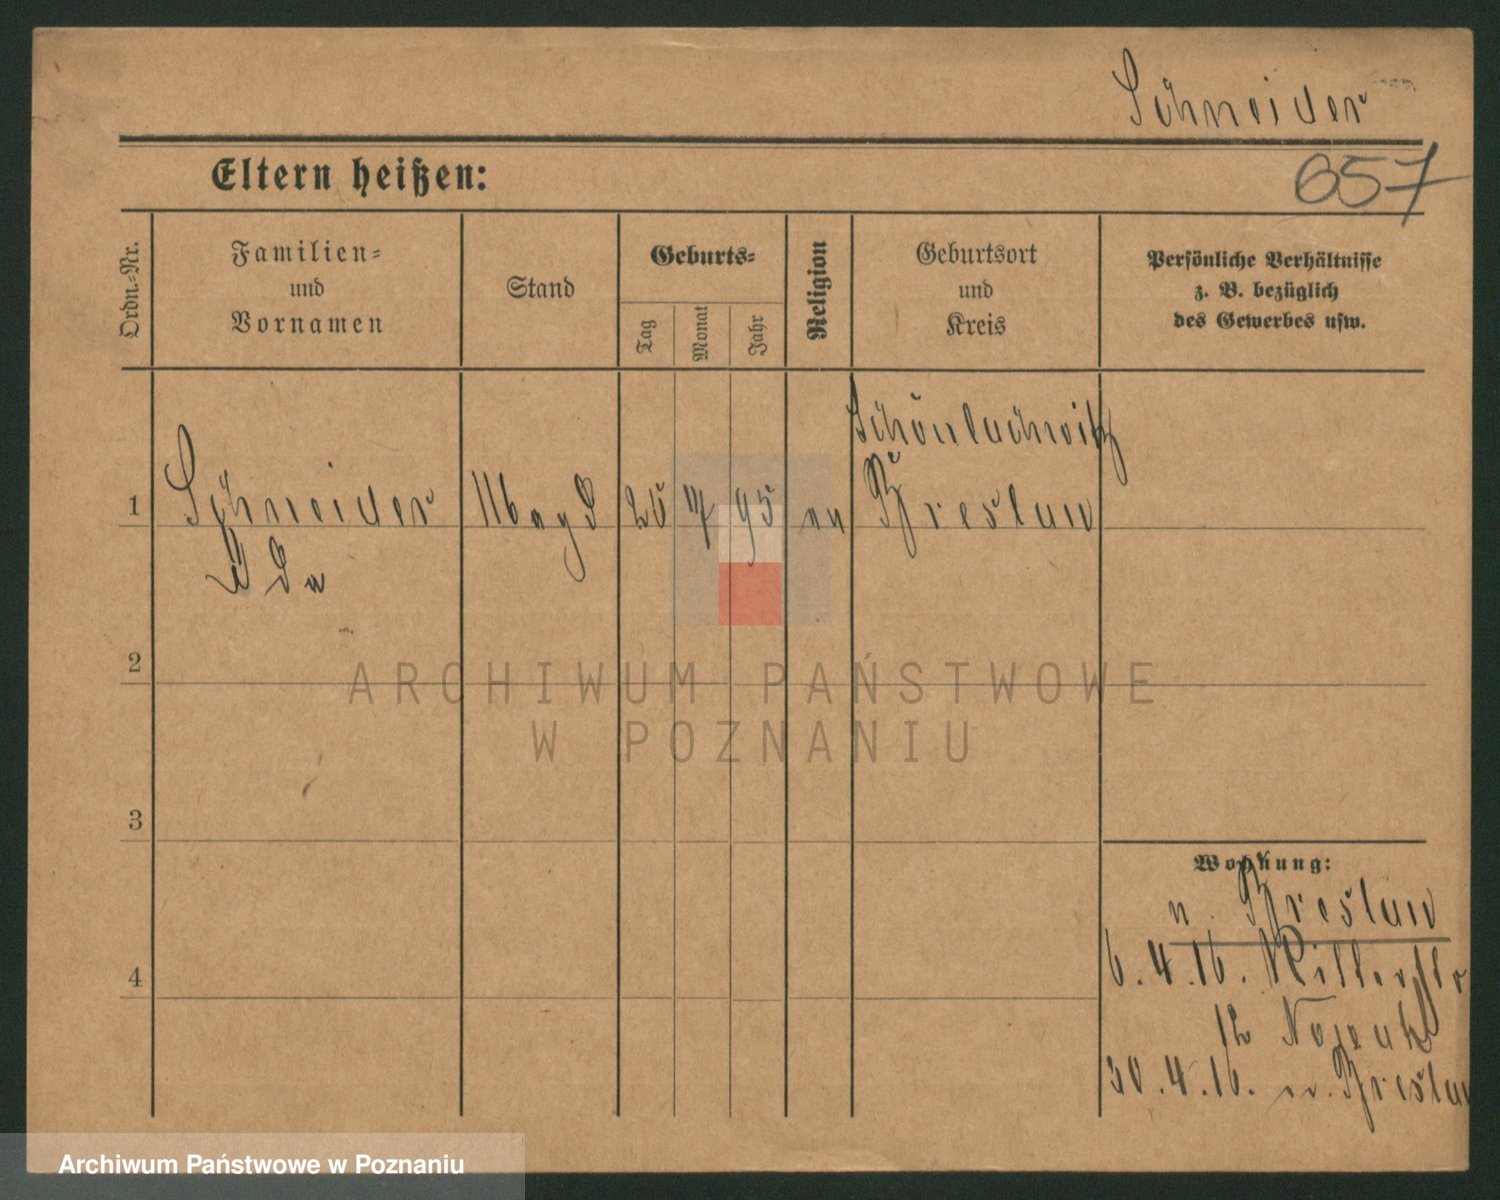 Schneider
657
Eltern heißen:
Ordn.-Nr.
Familien-
und
Vornamen
Stand
Geburts-
Tag
Monat
Jahr
Religion
Geburtsort
und
Kreis
Persönliche Verhältnisse
z. B. bezüglich
des Gewerbes usw.
Schönlachwitz
1 Schneider Magd 25 95 Breslau
Ida
2
ARCHIWUM PAŃSTWOWE
W POZNANIU
3
Wohnung:
n. Breslau
6.4.16. Ritterstr
4
12
30.4.16. n. Breslau
Archiwum Państwowe w Poznaniu